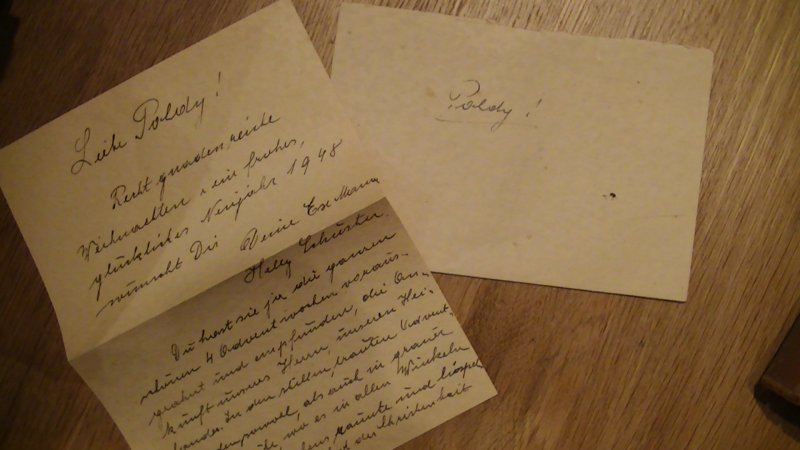 Liebe Poldy!
Recht gnadenreiche
Weihnachten u. ein frohes,
glückliches Neujahr 1948
wünscht Dir Deine
Helly Schuster.
Du hast sie ja die ganzen
schönen 4 Adventwochen voraus-
geahnt und empfunden, die An-
kunft unseres Herrn, unseren Hei-
landes. In den stillen trauten Advent-
als auch in grauer
wo es in allen Winkeln
raunte und lispel
der Christenheit
Poldy!